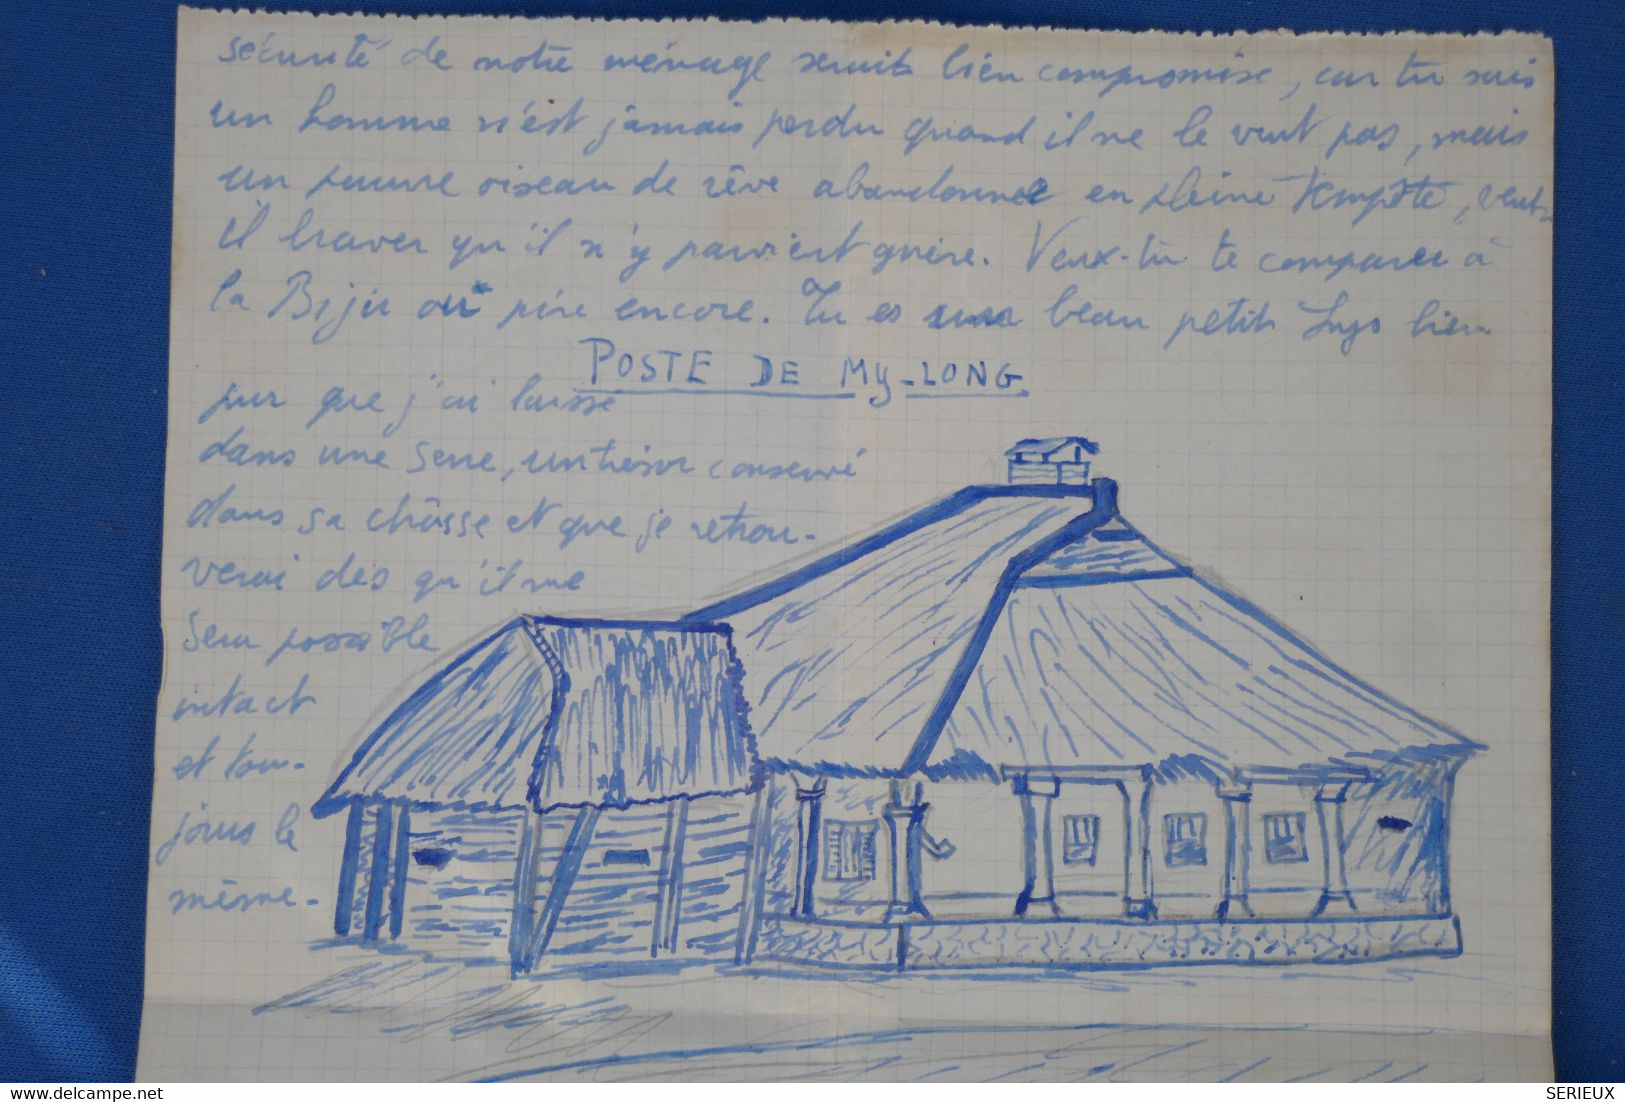 sécurité de notre ménage serait bien compromise, car tu sais
un homme n'est jamais perdu quand il ne le veut pas, mais
un pauvre oiseau de rêve abandonné en pleine Tempête, veut
il braver qu'il n'y parvient guère. Veux-tu te comparer à
la Bijir ou pire encore. Tu es beau petit Lys bien
POSTE DE MY-LONG
pur que j'ai laissé
dans une serre, un trésor conservé
dans sa châsse et que je retrou-
verai dès qu'il me
sera possible
intact
et tou-
jours le
même.
delcampe.net
SERIEUX